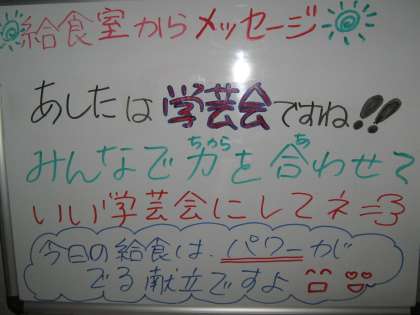 給食室からメッセージ
あしたは学芸会ですね!!
みんなで力を合わせて
ちから あ
いい学芸会にしてネ
今日の給食は、パワーが
でる献立ですよ